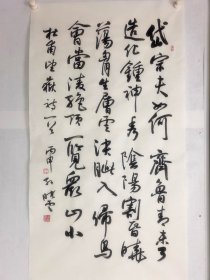 岱宗夫如何齊魯青未了
造化鍾神秀陰陽割昏曉
蕩胸生層雲決眦入歸鳥
會當凌絕頂一覽眾山小
杜甫望嶽詩一首 丙申